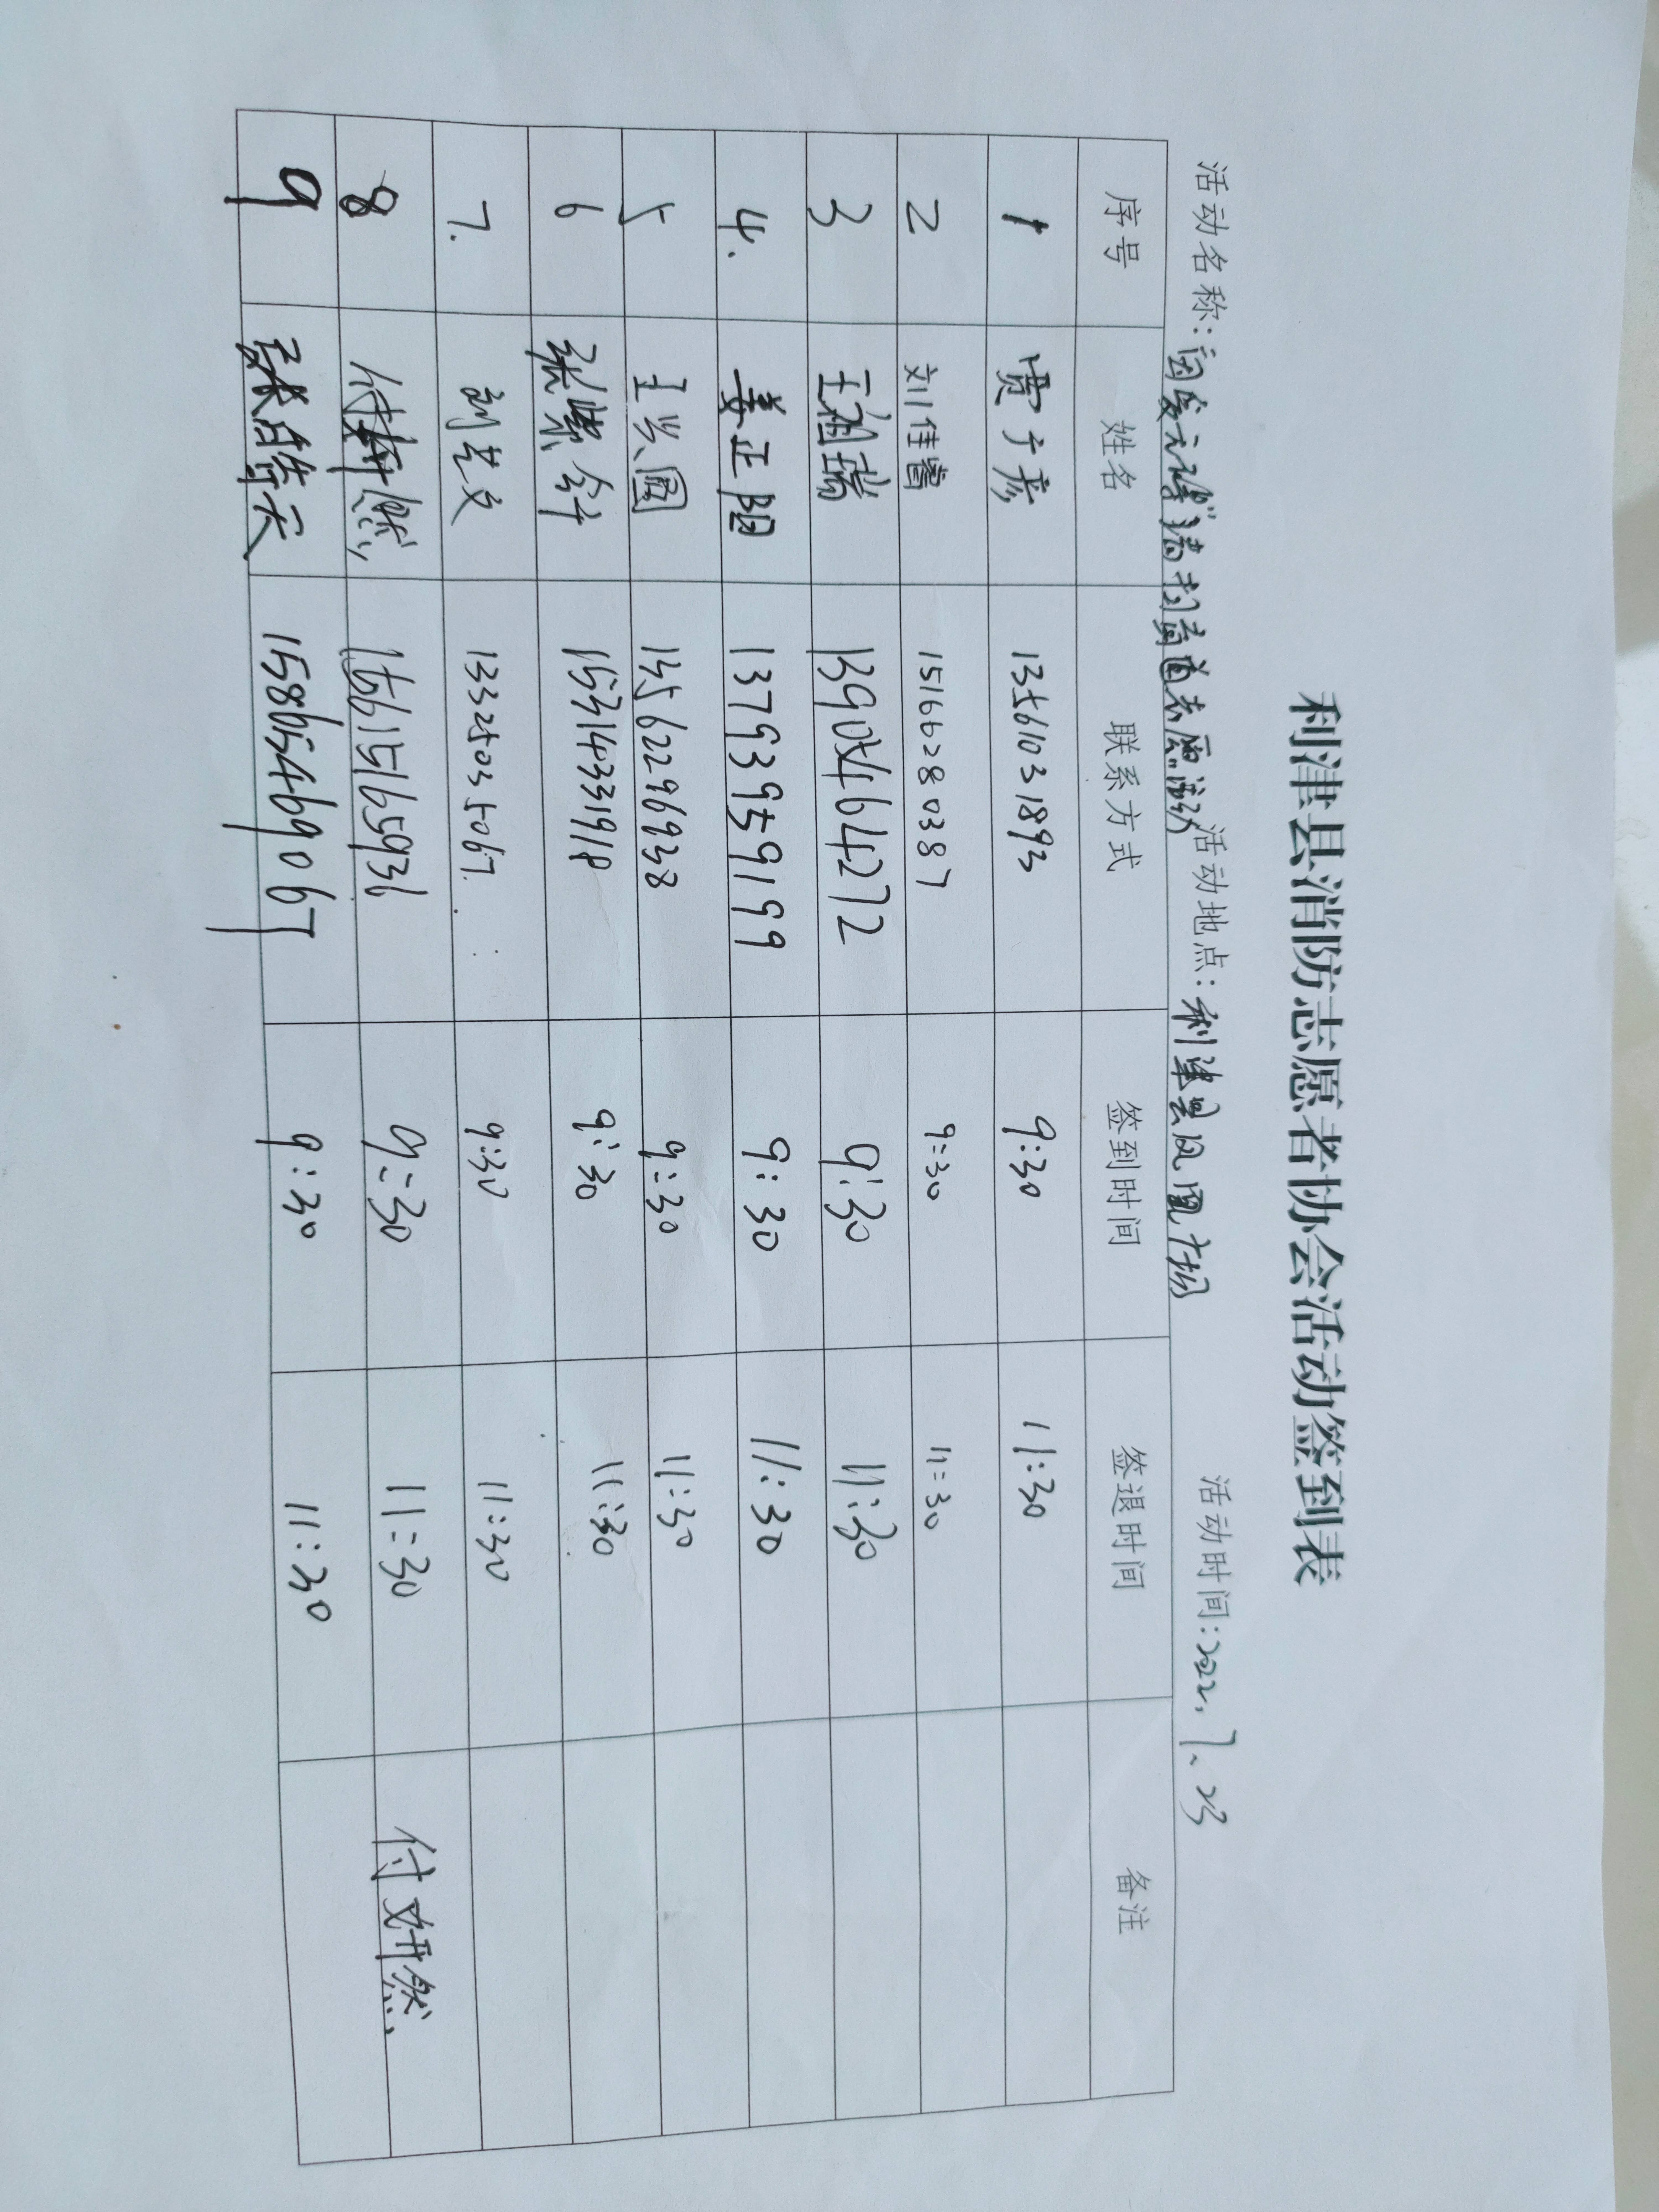 利津县消防志愿者协会活动签到表
活动名称：因爱云泽清扫街道志愿活动 活动地点：利津县凤凰广场 活动时间：2022.7.23
序号 姓名 联系方式 签到时间 签退时间 备注
1 贾于彦 13561031893 9:30 11:30
2 刘佳睿 15166280387 9:30 11:30
3 王祖瑞 13905464272 9:30 11:30
4. 姜正阳 13793959199 9:30 11:30
5 王兴国 13562296938 9:30 11:30
6 张紫舒 15314331918 9:30 11:30
7. 刘艺文 13325035067. 9:30 11:30
8 付妍然 15615165931 9:30 11:30 付妍然
9 张皓天 15865469067 9:30 11:30